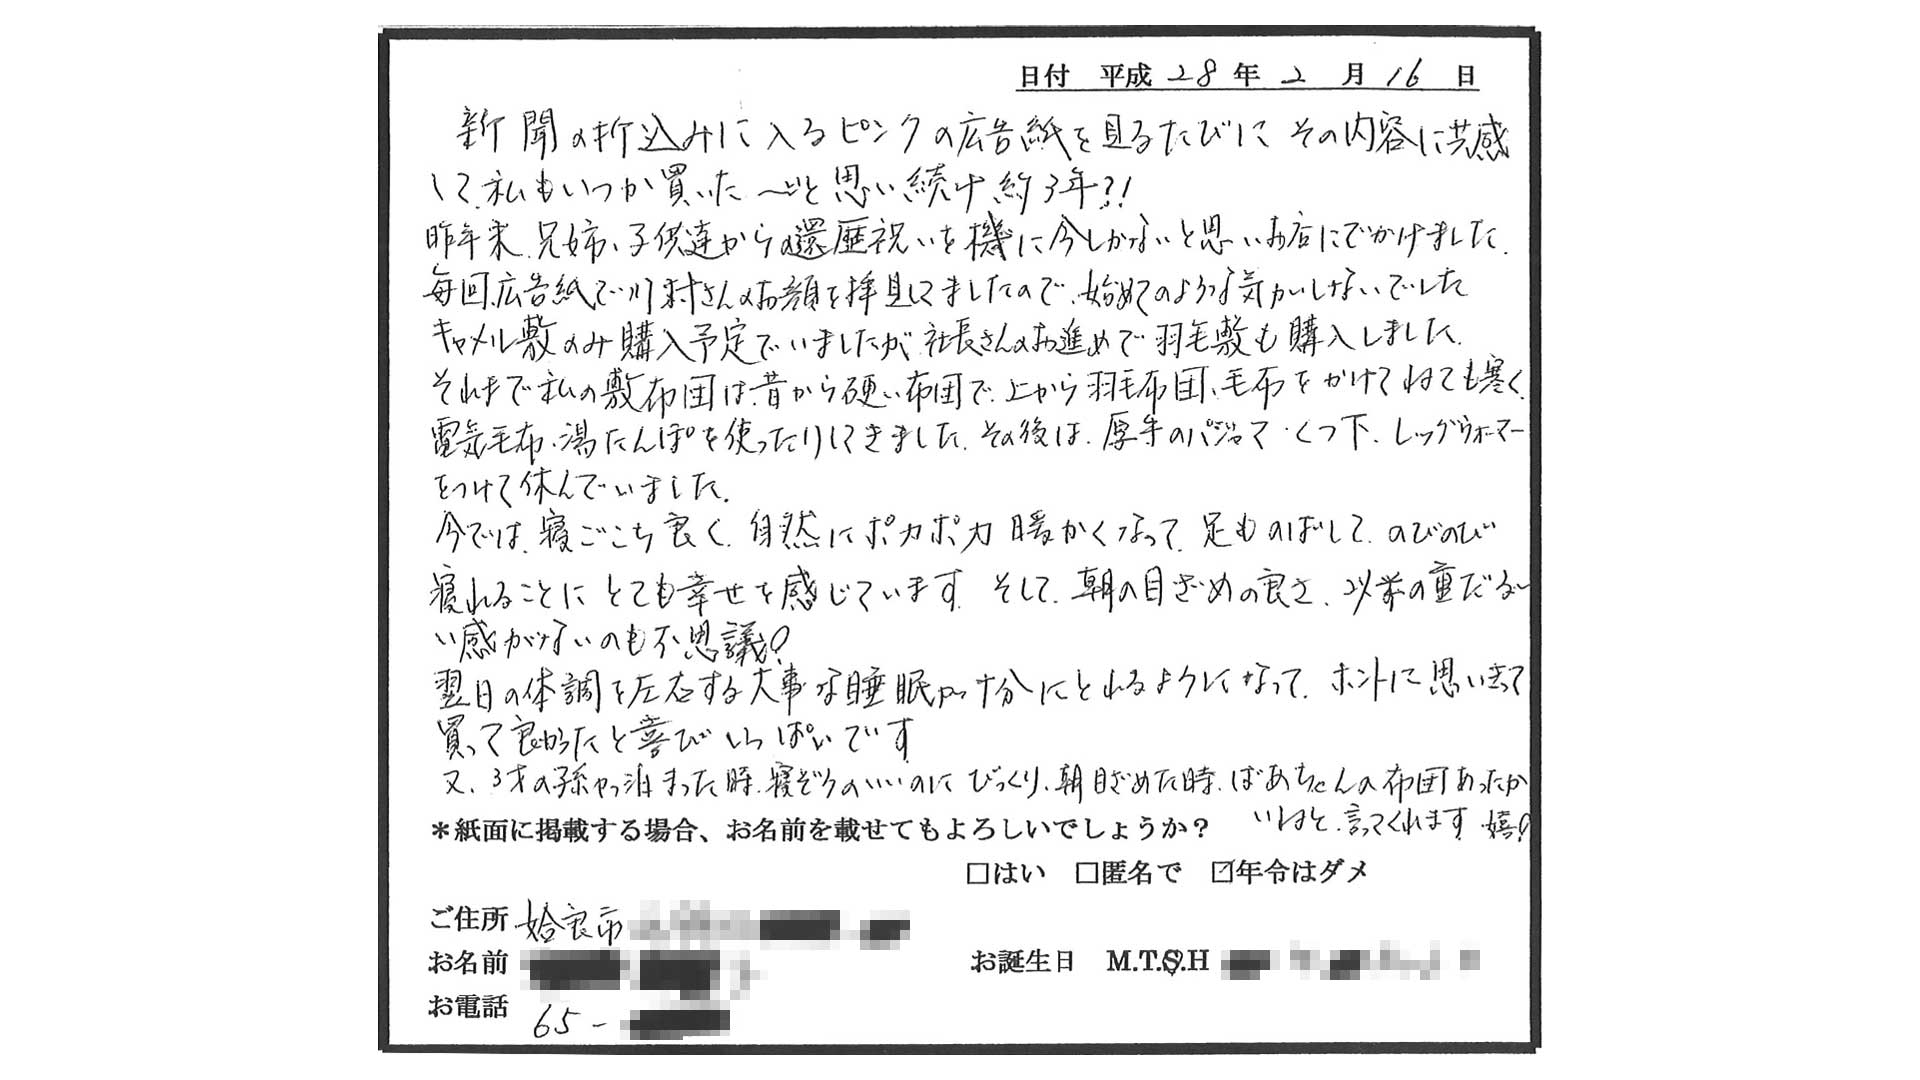 日付 平成 28 年 2 月 16 日
新聞の折込みに入るピンクの広告紙を見るたびに その内容に共感
して、私もいつか買いた〜いと思い続け 約3年?!
昨年末、兄姉、子供達からの還暦祝いを機に今しかないと思いお店にでかけました。
毎回、広告紙で川村さんのお顔を拝見してましたので、始めてのような気がしないでした
キャメル敷のみ購入予定でいましたが 社長さんのお進めで羽毛敷も購入しました。
それまで私の敷布団は、昔から硬い布団で、上から羽毛布団、毛布をかけてねても寒く、
電気毛布、湯たんぽを使ったりしてきました。その後は、厚手のパジャマ、くつ下、レッグウォーマー
をつけて休んでいました。
今では、寝ごこち良く、自然にポカポカ暖かくなって、足ものばして、のびのび
寝れることに とても幸せを感じています。そして、朝の目ざめの良さ、以前の重だる〜
い感がないのも不思議!
翌日の体調を左右する大事な睡眠が十分にとれるようになって、ホントに思い切って
買って良かったと喜びいっぱいです
又、3才の孫が泊まった時、寝ぞうのいいのに びっくり、朝目ざめた時、ばあちゃんの布団あったか
いねと、言ってくれます。嬉!
＊紙面に掲載する場合、お名前を載せてもよろしいでしょうか？
□はい □匿名で ☑年令はダメ
ご住所 姶良市
お名前
お誕生日 M.T.S.H
お電話 65-